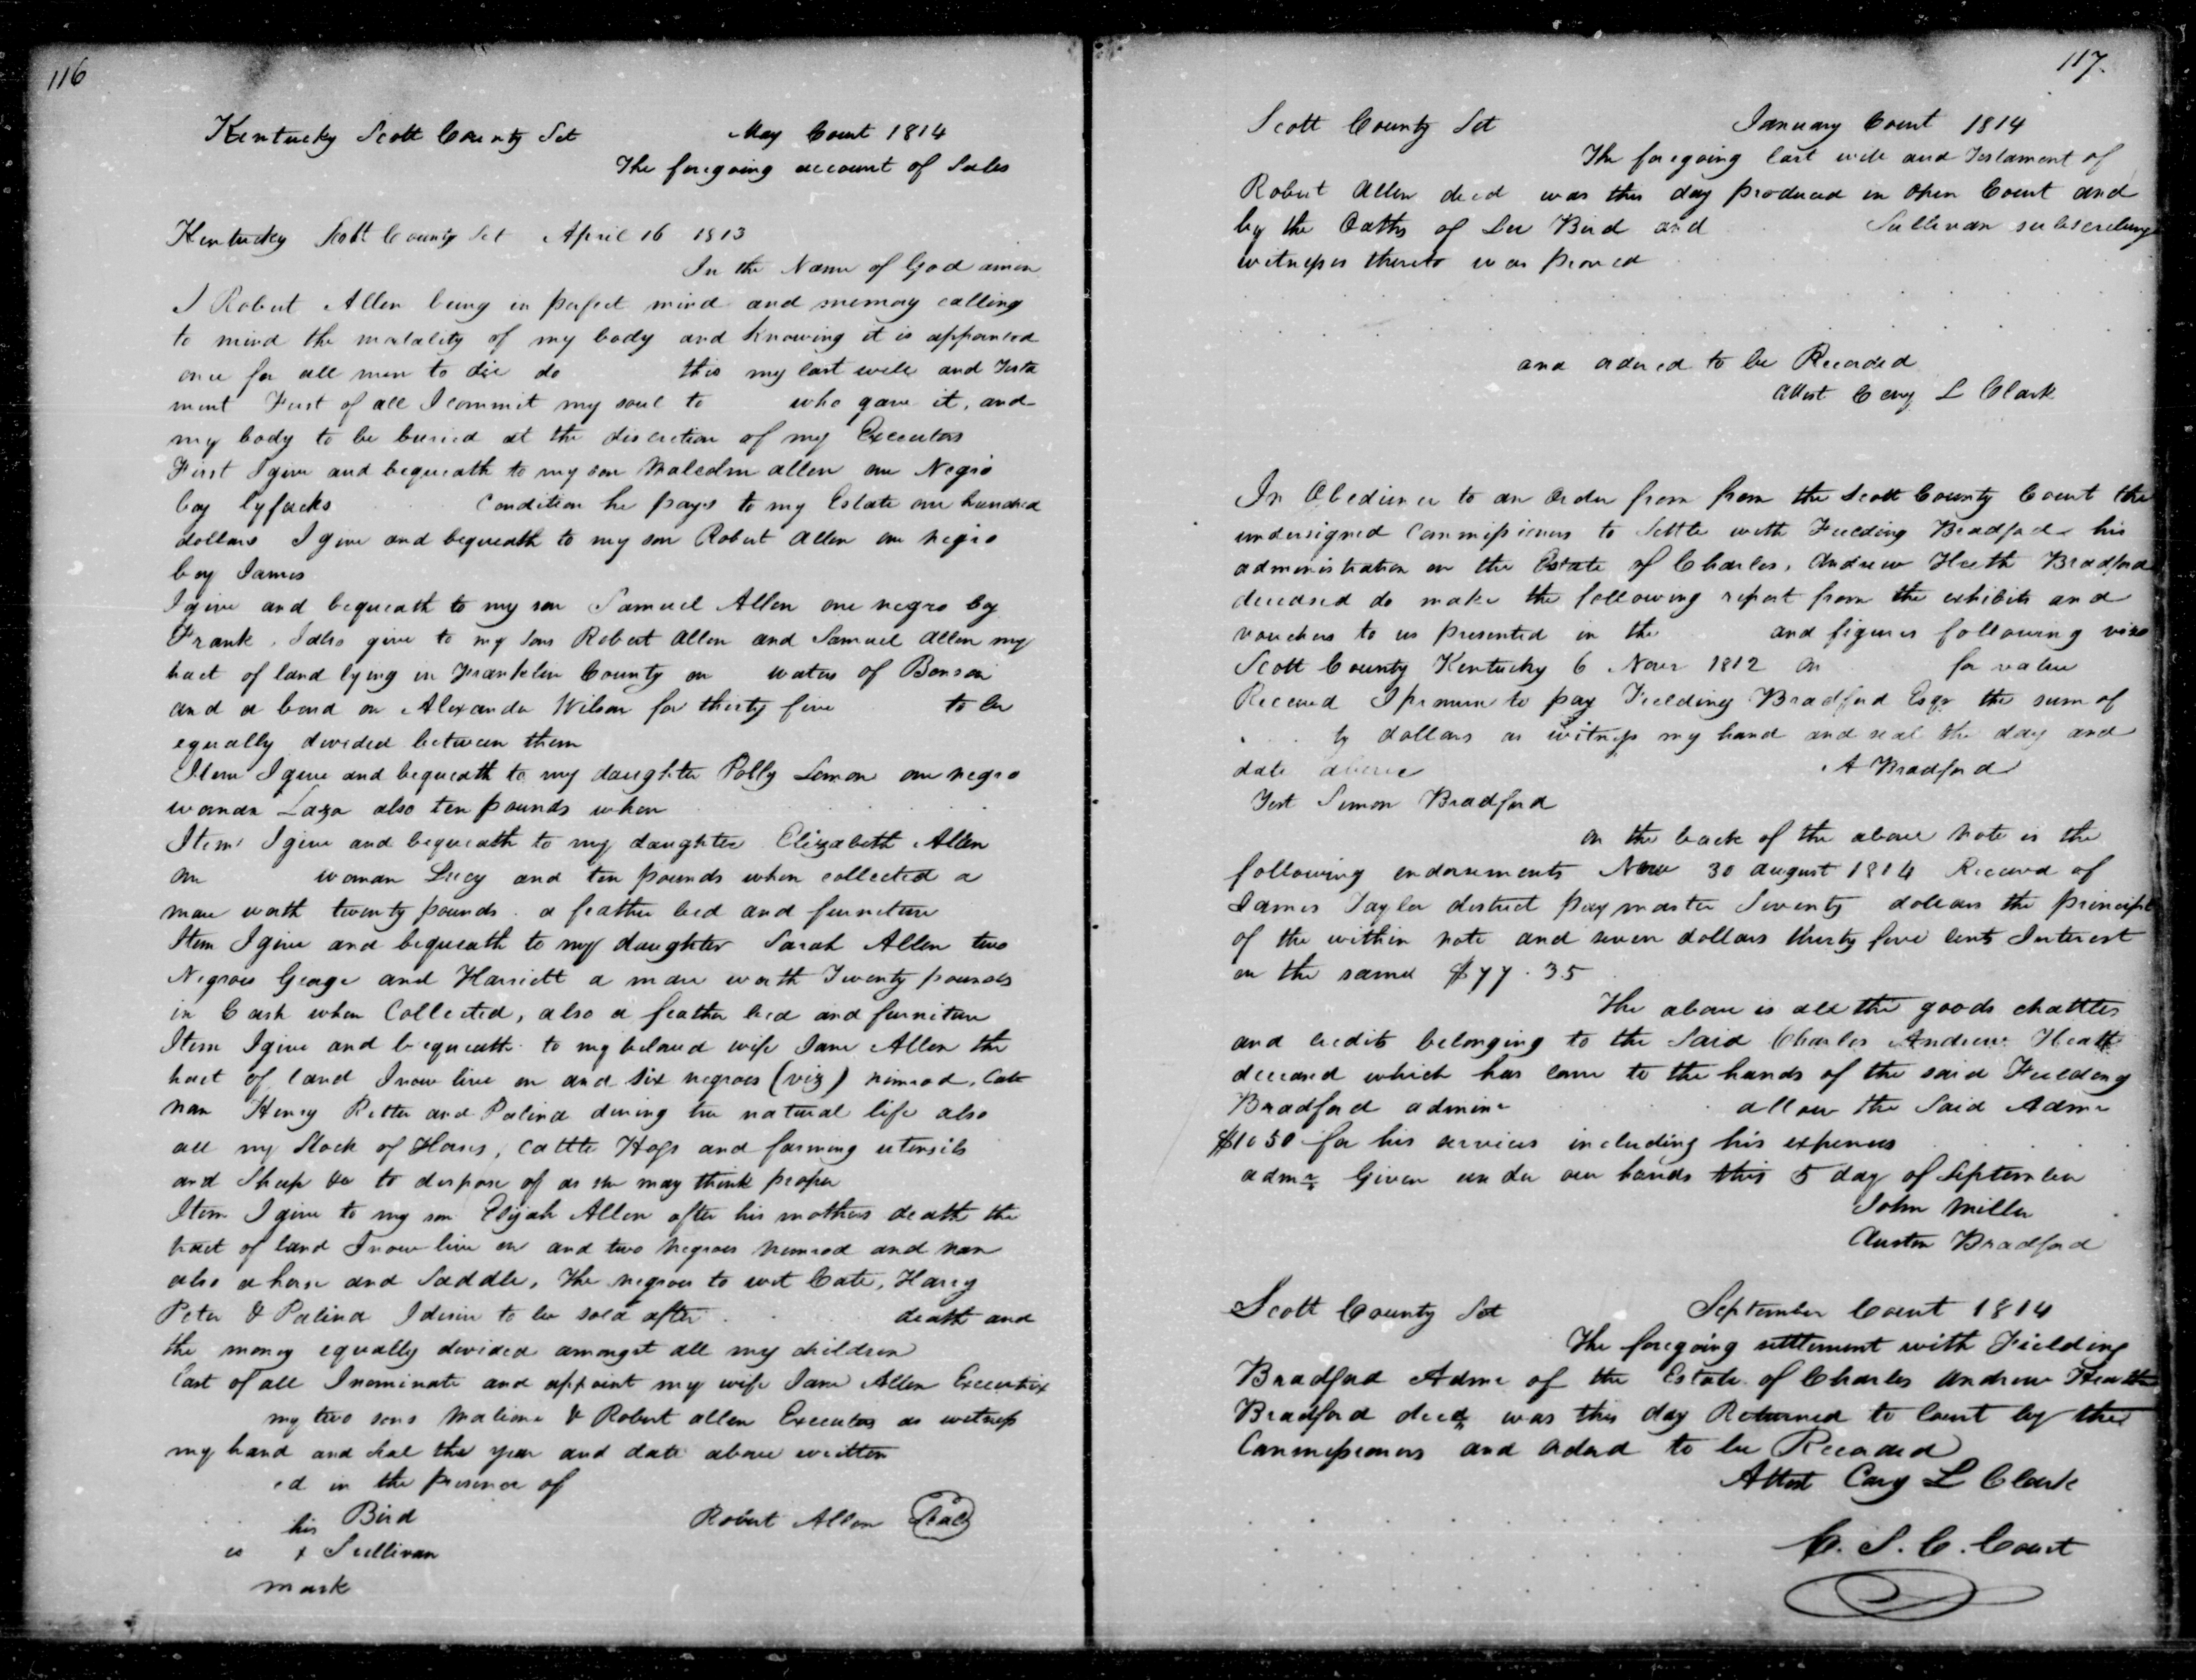 116
Kentucky Scott County Sct May Court 1814
The foregoing account of Sales
Kentucky Scott County Sct April 16 1813
In the Name of God amen
I Robert Allen being in perfect mind and memory calling
to mind the mortality of my body and knowing it is appointed
once for all men to die do this my last will and Testa
ment First of all I commit my soul to who gave it, and
my body to be buried at the discretion of my Executors
First I give and bequeath to my son Malcolm allen one Negro
boy Condition he pays to my Estate one hundred
dollars I give and bequeath to my son Robert Allen one negro
boy James
I give and bequeath to my son Samuel Allen one negro boy
Frank. I also give to my sons Robert Allen and Samuel Allen my
tract of land lying in Franklin County on waters of Benson
and a bond on Alexander Wilson for thirty five to be
equally divided between them
Item I give and bequeath to my daughter Polly Lemon one negro
woman also ten pounds when
Item I give and bequeath to my daughter Elizabeth Allen
one woman Lucy and ten pounds when collected a
mare worth twenty pounds. a feather bed and furniture
Item I give and bequeath to my daughter Sarah Allen two
Negroes George and Harriett a mare worth Twenty pounds
in Cash when Collected, also a feather bed and furniture
Item I give and bequeath to my beloved wife Jane Allen the
tract of land I now live on and six negroes (viz) nimrod, Cate
nan Henry Petter and Palina during her natural life also
all my Stock of Horses, Cattle Hogs and farming utensils
and Sheep &c to dispose of as she may think proper
Item I give to my son Elijah Allen after his mothers death the
tract of land I now live on and two negroes nimrod and nan
also a horse and Saddle, The negroes to wit Cate, Harry
Peter & Palina I desire to be sold after death and
the money equally divided amongst all my children
Last of all I nominate and appoint my wife Jane Allen Executrix
my two sons & Robert allen Executors as witness
my hand and seal the year and date above written
ed in the presence of
his Bird Robert Allen Seal
is x Sullivan
mark
117.
Scott County Sct January Court 1814
The foregoing last will and Testament of
Robert Allen decd was this day produced in open Court and
by the Oaths of Bird and Sullivan subscribing
witnesses thereto was proved
and ordered to be Recorded
Attest Cary L Clark
In Obedience to an Order from from the Scott County Court the
undersigned Commissioners to Settle with Fielding Bradford his
administration on the Estate of Charles, Andrew Heath Bradford
deceased do make the following report from the exhibits and
vouchers to us presented in the and figures following viz
Scott County Kentucky 6 Novr 1812 on for value
Received I promise to pay Fielding Bradford Esqr the sum of
ty dollars as witness my hand and seal the day and
date above A Bradford
Test Simon Bradford
On the back of the above note is the
following endorsements 30 August 1814 Received of
James Taylor district paymaster Seventy dollars the principl
of the within note and seven dollars thirty five cents Interest
on the same $77.35
The above is all the goods chattles
and credits belonging to the Said Charles Andrew Heath
deceased which has came to the hands of the said Fielding
Bradford admin allow the Said Admr
$10 50 for his services including his expences
admr Given under our hands this 5 day of September
John Miller
Austin Bradford
Scott County Sct September Court 1814
The foregoing settlement with Fielding
Bradford Admr of the Estate of Charles Andrew Heath
Bradford decd was this day Returned to Court by the
Commissioners and Ordered to be Recorded
Attest Cary L Clark
C. S. C. Court